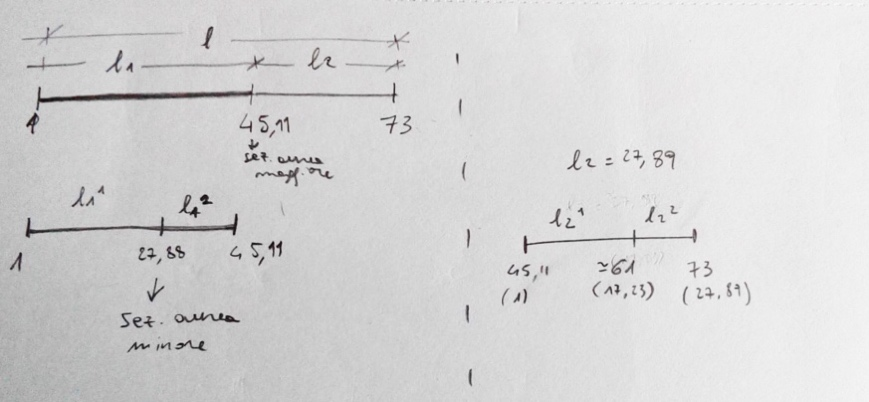 l
l1 l2
1 45,11 73
sez. aurea
maggiore
l1¹ l1²
1 27,88 45,11
sez. aurea
minore
l2 = 27,89
l2¹ l2²
45,11 ≃61 73
(1) (17,23) (27,89)